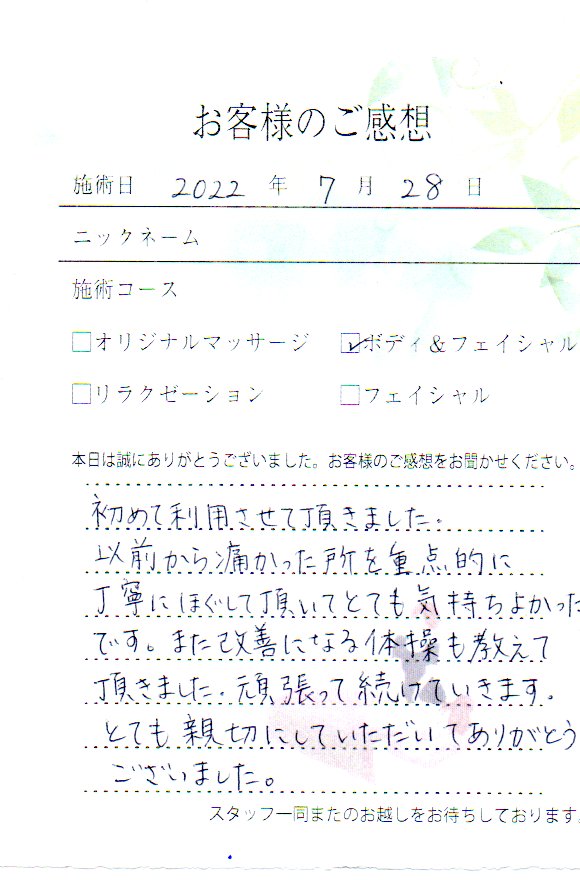 お客様のご感想
施術日 2022 年 7 月 28 日
ニックネーム
施術コース
□オリジナルマッサージ ☑ボディ&フェイシャル
□リラクゼーション □フェイシャル
本日は誠にありがとうございました。お客様のご感想をお聞かせください。
初めて利用させて頂きました。
以前から痛かった所を重点的に
丁寧にほぐして頂いてとても気持ちよかった
です。また改善になる体操も教えて
頂きました。頑張って続けていきます。
とても親切にしていただいてありがとう
ございました。
スタッフ一同またのお越しをお待ちしております。